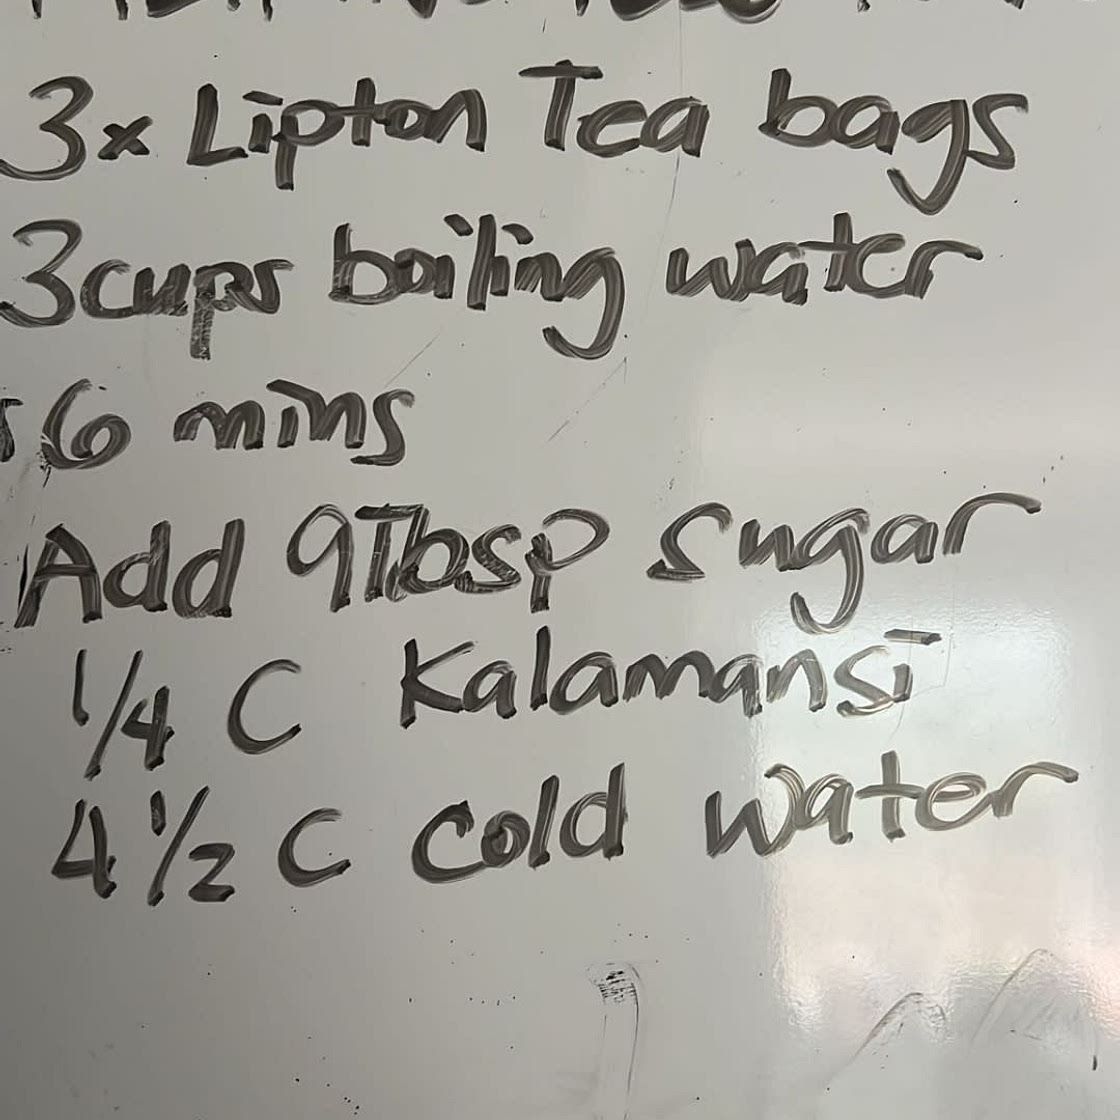 3x Lipton Tea bags
3 cups boiling water
6 mins
Add 9Tbsp sugar
1/4 C Kalamansi
4 1/2 C cold water